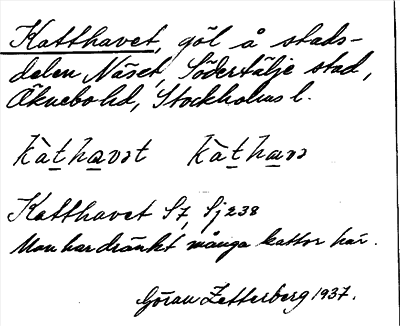 Katthavet, göl å stads-
delen Näset, Södertälje stad,
Öknebo hd, Stockholms l.
kàt̲ha̲vət kàt̲ha̲və
Katthavet Sj 238
Man har dränkt många kattor här.
Göran Zetterberg 1937.